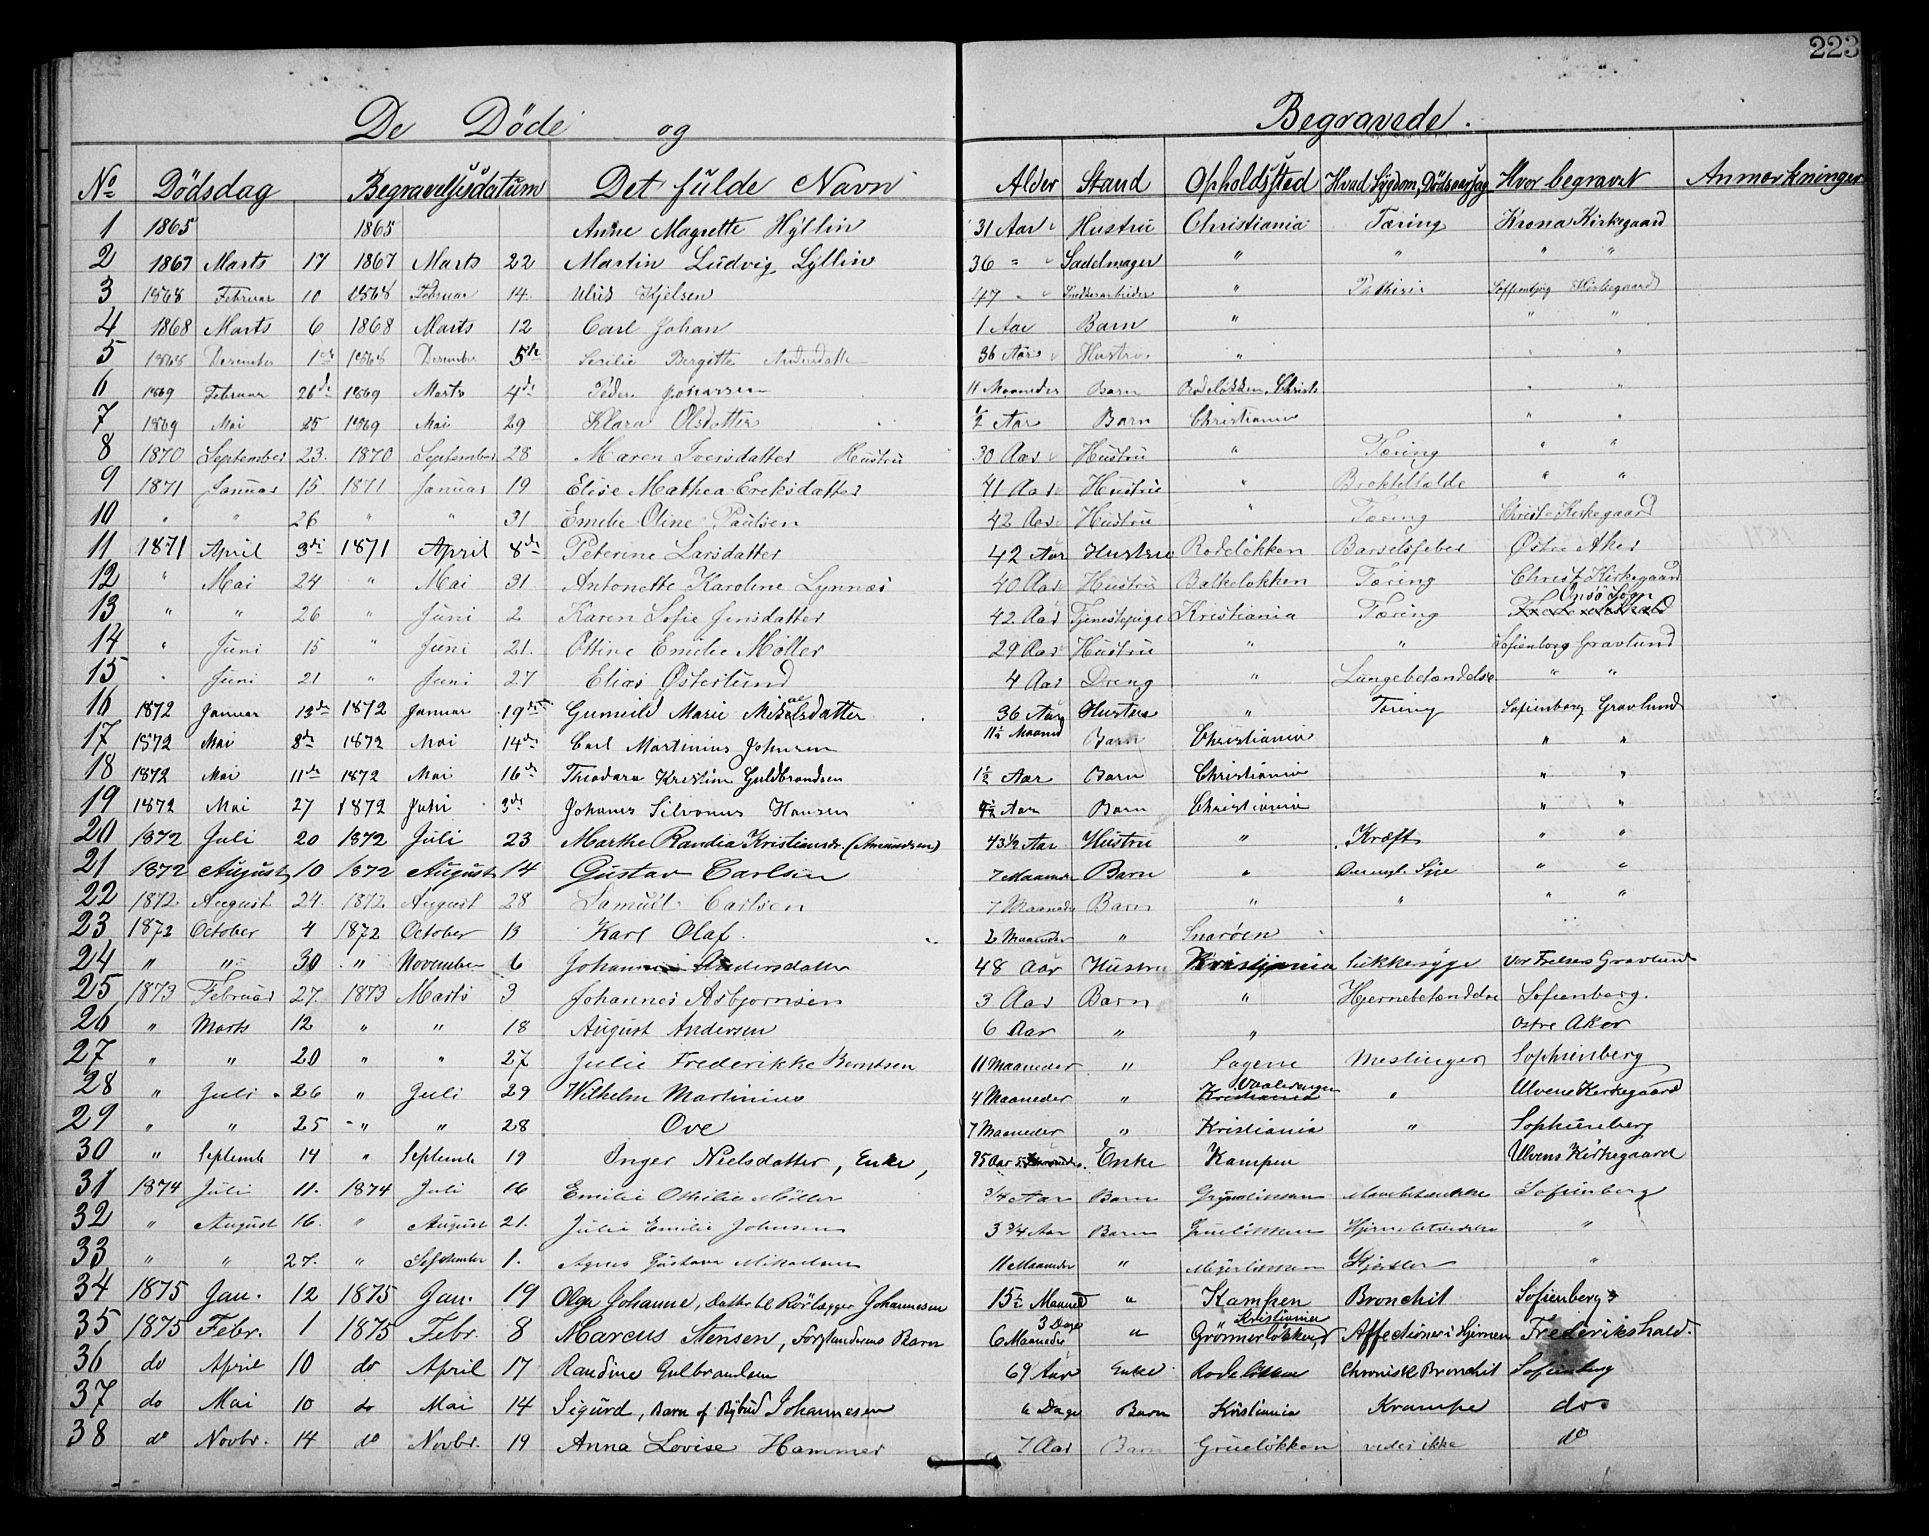 223
De Döde og Begravede.
No Dödsdag Begravelsesdatum Det fulde Navn Alder Stand Opholdssted Hvad Sygdom, Dödsaarsag Hvor begravet Anmærkninger
1 1865 1865 Anne Magrette Hyllin 31 Aar Hustru Christiania Tæring Krona Kirkegaard
2 1867 Marts 17 1867 Marts 22 Martin Ludvig Lyllin 36 " Sadelmager " " " "
3 1868 Februar 10 1868 Februar 14. Ulrik Kjelsen 47 " Snedkerarbeider " Pthisis Soffienbjg Kirkegaard
4 1868 Marts 6 1868 Marts 12 Carl Johan 1 Aar Barn " " "
5 1868 Desember 1de 1868 Desember 5te Secilie Bergitte Andersdatt 36 Aar Hustru " " "
6 1869 Februar 26de 1869 Marts 4de Peder Johansen 11 Maaneder Barn Rodeløkken, Christi " "
7 1869 Mai 25 1869 Mai 29 Klara Olsdatter 1/2 Aar Barn Christiania " "
8 1870 September 23. 1870 September 28 Maren Iversdatter Hustru 30 Aar Hustru " Tæring " "
9 1871 Januar 15. 1871 Januar 19 Elise Mathea Ereksdatter 41 Aar Hustru " " "
10 " " 26 " " 31 Emelie Oline Paulsen 42 Aar Hustru " Tæring Christ Kirkegaard
11 1871 April 3di 1871 April 8de Peterine Larsdatter 42 Aar Hustru Rodeløkken Barselsfeber Østre Aker
12 " Mai 24 " Mai 31 Antonette Karoline Lynnæs 40 Aar Hustru Balkeløkken Tæring Christ Kirkegaard
13 " " 26 " Juni 2 Karen Sofie Jensdatter 42 Aar Tjenestepige Kristiania Tæring Onsö Sogn
14 " Juni 15 " Juni 21. Ottine Emilie Møller 29 Aar Hustru " " Sofienberg Gravlund
15 " Juni 21 " Juni 27 Elias Østerlund 4 Aar Dreng Lungebetændelse " "
16 1872 Januar 13de 1872 Januar 19de Guneild Marie Mikaelsdatter 36 Aar Hustru " Tæring Sofienberg Gravlund
17 1872 Mai 8de 1872 Mai 14de Carl Martinius Johnsen 11 1/2 Maaned Barn Christiania " "
18 1872 Mai 11de 1872 Mai 16de Theodara Kristine Guldbrandsen 1 1/2 Aar Barn Christiania " "
19 1872 Mai 27 1872 Juni 3de Johanes Silvanus Hansen Aar Barn Christiania " "
20 1872 Juli 20 1872 Juli 23 Marthe Randia Kristiansdr. (Amundsen) 43 1/2 Aar Hustru " Kræft " "
21 1872 August 10 1872 August 14 Gustav Carlsen 7 Maaneder Barn " " "
22 1872. August 24. 1872. August 28 Samuel Carlsen 7 Maaneder Barn " " " "
23 1872 October 4 1872 October 13 Karl Olaf. 2 Maaneder " Snarøen "
24 " " 30 " November 6 Johanne Andersdatter 48 Aar Hustru Kristiania Sukkesyge Vor Frelsers Gravlund
25 1873 Februar 27. 1873 Marts 3 Johannes Asbjørnsen 3 Aar Barn " Hjernebetændelse Sofienberg.
26 " Marts 12 " " 18 August Andersen 6 Aar " " Østre Aker
27 " " 20 " " 27 Julie Frederikke Berntsen 11 Maaneder " Sagene Meslinger Sophienberg
28 " Juli 26 " Juli 29 Wilhelm Martinius 4 Maaneder " Kristiania Vaalerengen " Ulvens Kirkegaard
29 " " 25 " " 28 Ove 7 Maaneder " Kristiania " Sophienberg
30 " Septemb 14 " Septemb 19 Inger Nielsdatter, Enke, Aar Enke Kampen Ulvens Kirkegaard
31 1874 Juli 11. 1874 Juli 16 Emilie Othilie Møller 3/4 Aar Barn Sofienberg
32 " August 16. " August 21. Julie Emilie Johnsen 3 3/4 Aar Barn Grueløkken Hjernebetændelse "
33 " " 27. " September 1. Agnes Gustava Mikaelsen 11 Maaneder " Meyerløkken "
34 1875 Jan. 12 1875 Jan. 19 Olga Johanne, Datter til Rörlægger Johannesen 15 1/2 Maaned " Kampen Bronchit Sofienberg
35 1875 Febr. 1 1875 Febr. 8 Marcus Stensen, Forstanderens Barn 6 Maaneder 3 Dage " Grønnerløkken, Kristiania Affectioner i Hjernen Frederikshald.
36 do April 10 do April 17 Randine Gulbrandsen 69 Aar Enke Rodeløkken Chronisk Bronchit Sofienberg
37 do Mai 10 do Mai 14 Sigurd, Barn af Bybud Johannesen 6 Dage Barn Kristiania Krampe do.
38 do Novbr. 14 do Novbr. 19 Anna Lovise Hammer 7 Aar Barn Grueløkken vides ikke do